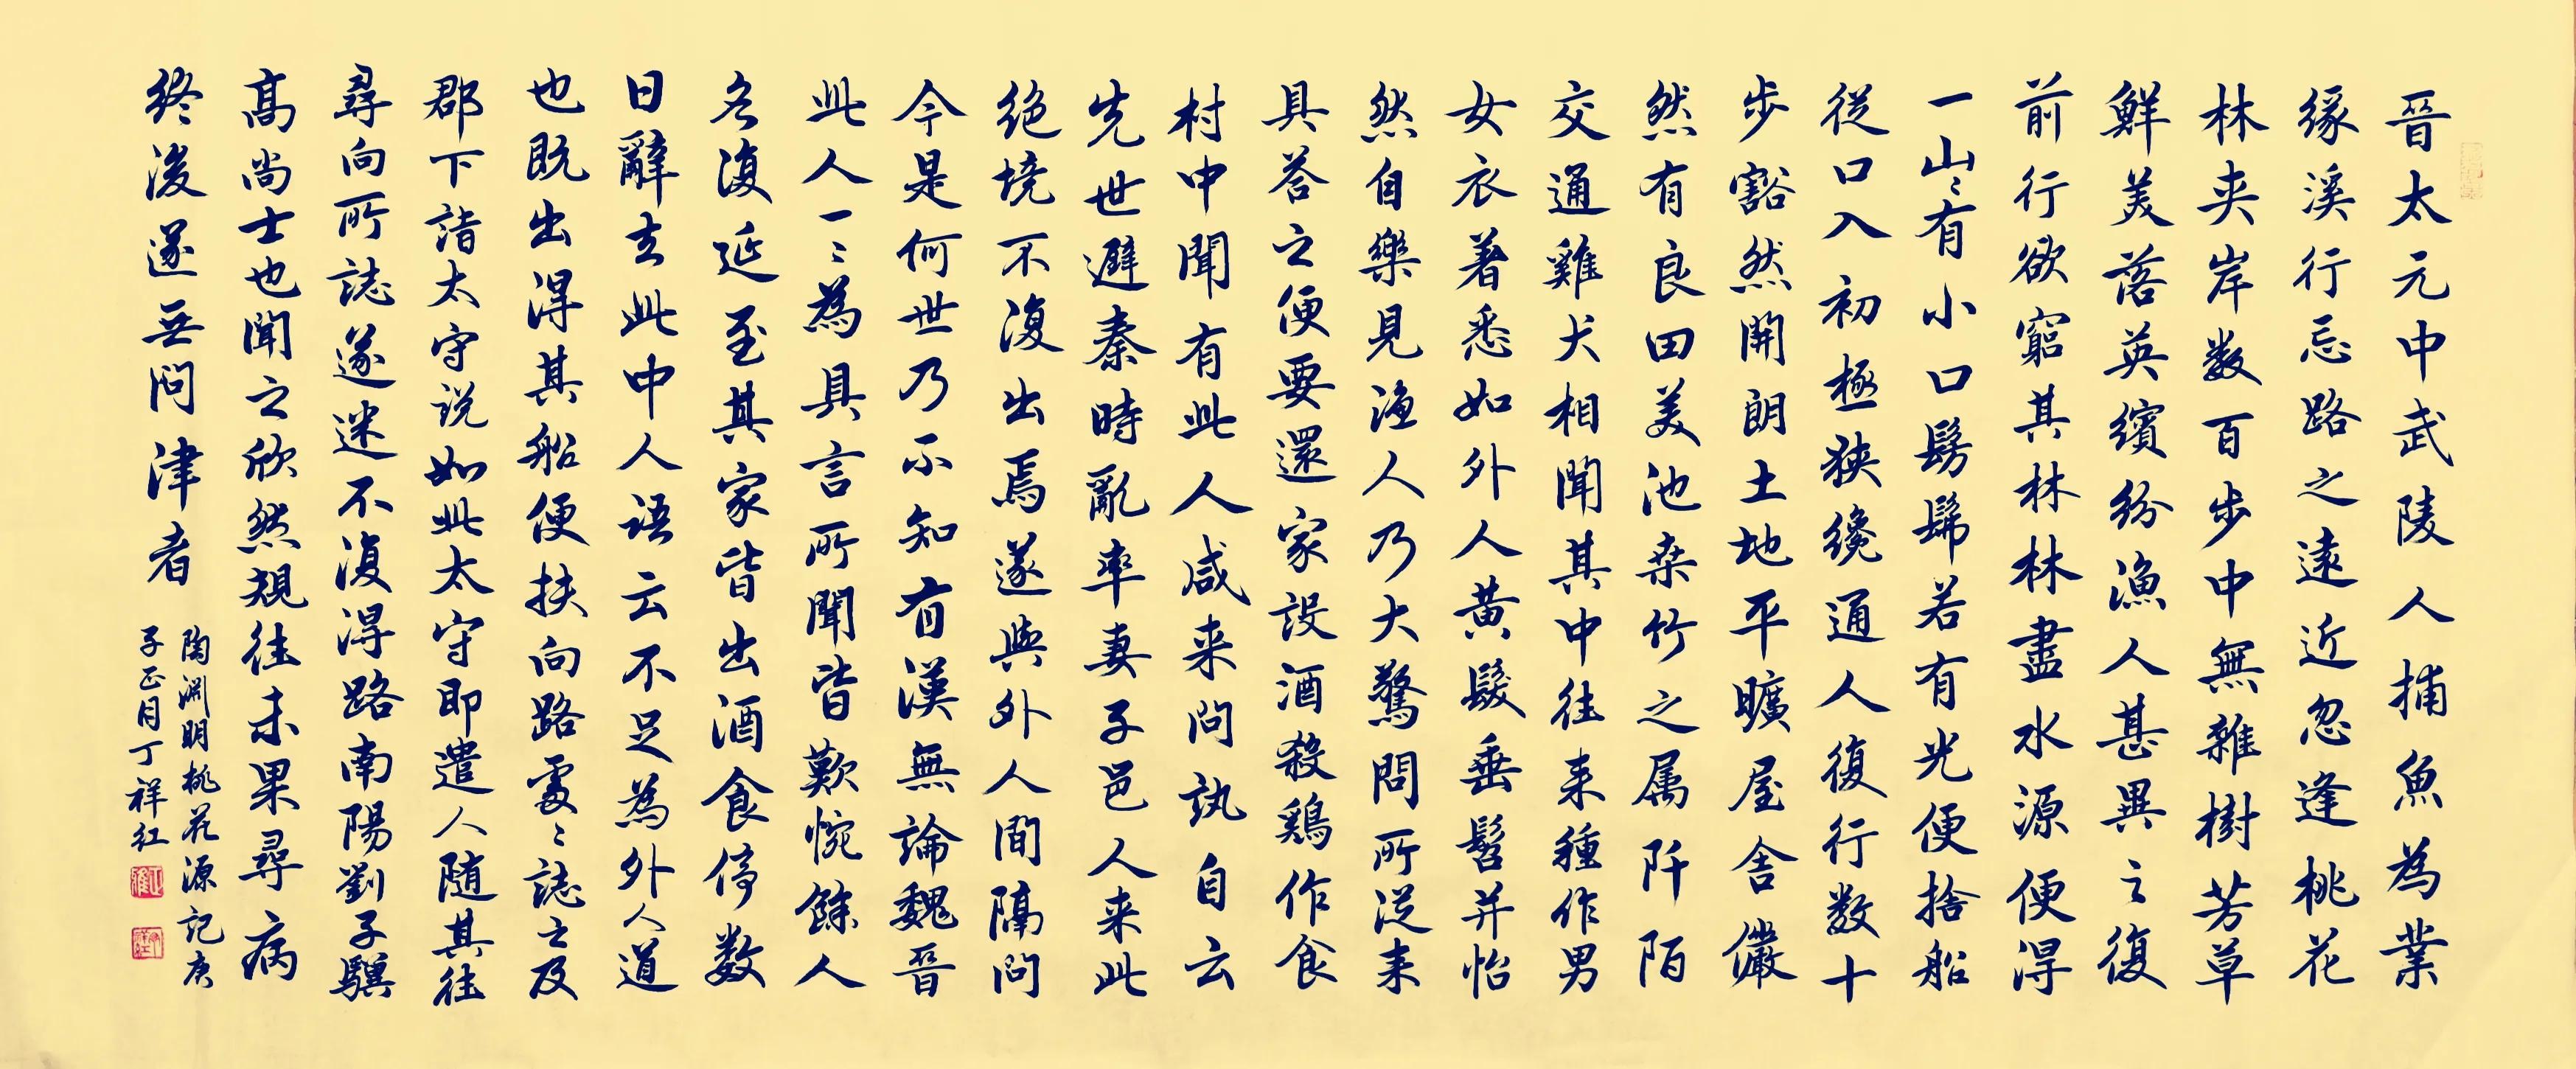 晉太元中武陵人捕魚為業
緣溪行忘路之遠近忽逢桃花
林夹岸数百步中無雜樹芳草
鮮美落英繽紛漁人甚異之復
前行欲窮其林林盡水源便得
一山〻有小口髣髴若有光便捨船
從口入初極狹纔通人復行数十
步豁然開朗土地平曠屋舍儼
然有良田美池桑竹之属阡陌
交通雞犬相聞其中往来種作男
女衣著悉如外人黃髮垂髫并怡
然自樂見漁人乃大驚問所從来
具答之便要還家設酒殺鷄作食
村中聞有此人咸来问訊自云
先世避秦時亂率妻子邑人来此
绝境不復出焉遂與外人間隔问
今是何世乃不知有漢無論魏晉
此人一〻為具言所聞皆歎惋餘人
各復延至其家皆出酒食停数
日辭去此中人语云不足為外人道
也既出得其船便扶向路處〻誌之及
郡下詣太守说如此太守即遣人随其往
尋向所誌遂迷不復得路南陽劉子驥
高尚士也聞之欣然規往未果尋病
終後遂無问津者
陶渊明桃花源記庚
子正月丁祥红